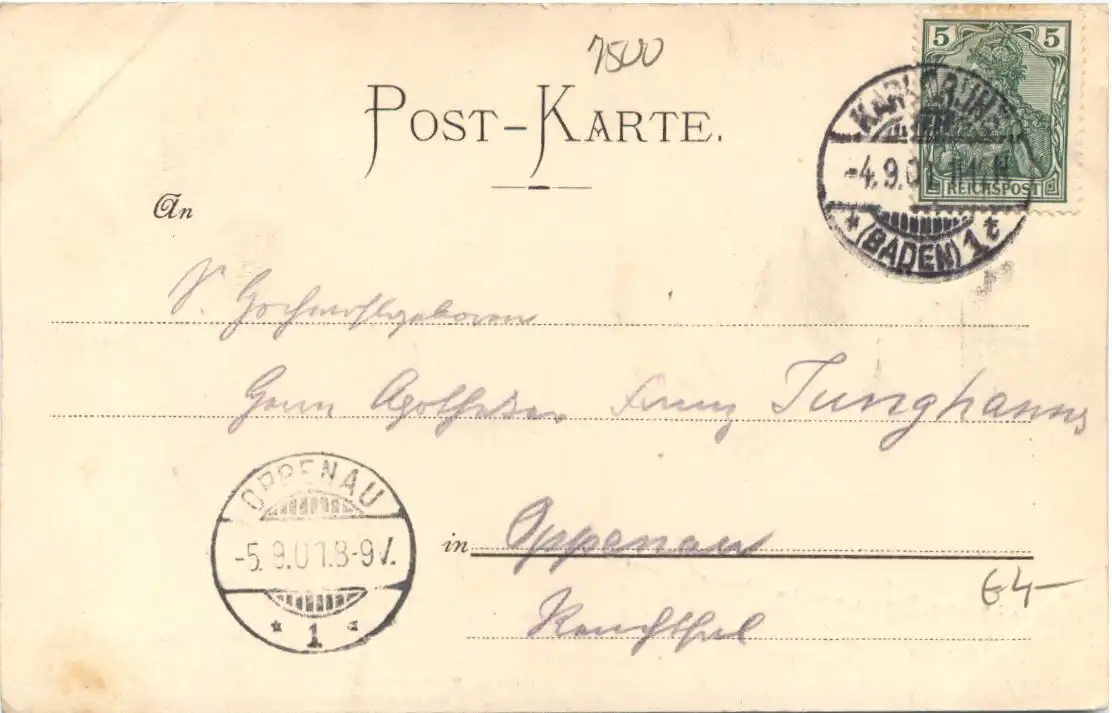 7500
POST-KARTE.
5 5
REICHSPOST
KARLSRUHE
-4.9.01. 11-12N
* (BADEN) 1 t
An
S. Hochwohlgeboren
Herrn Apotheker Franz Junghanns
OPPENAU
-5.9.01.8-9V.
* 1 *
in Oppenau
Renchthal
64-